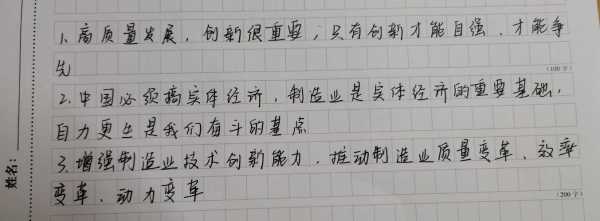 1.高质量发展，创新很重要，只有创新才能自强、才能争
先
(100字)
2.中国必须搞实体经济，制造业是实体经济的重要基础，
自力更生是我们奋斗的基点
3.增强制造业技术创新能力，推动制造业质量变革、效率
变革、动力变革
(200字)
姓名：